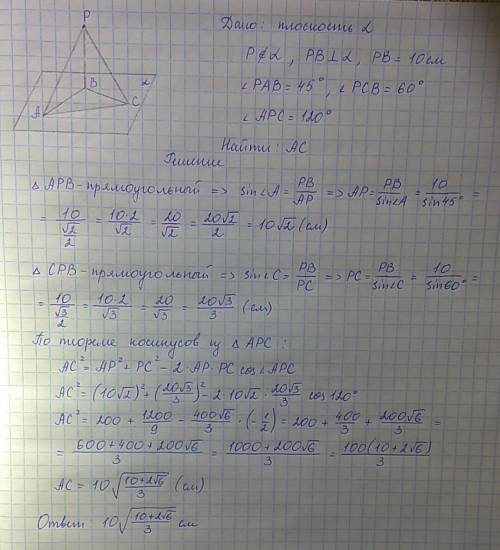 P
B
A
C
α
Дано: плоскость α
P∉α, PB⊥α, PB = 10 см
∠PAB = 45°, ∠PCB = 60°
∠APC = 120°
Найти: AC
Решение
△APB - прямоугольной => sin∠A = PB/AP => AP = PB/sin∠A = 10/sin45° =
= 10/(√2/2) = 10·2/√2 = 20/√2 = 20√2/2 = 10√2 (см)
△CPB - прямоугольной => sin∠C = PB/PC => PC = PB/sin∠C = 10/sin60° =
= 10/(√3/2) = 10·2/√3 = 20/√3 = 20√3/3 (см)
По теореме косинусов из △APC:
AC² = AP² + PC² - 2·AP·PC cos∠APC
AC² = (10√2)² + (20√3/3)² - 2·10√2·20√3/3 cos120°
AC² = 200 + 1200/9 - 400√6/3·(-1/2) = 200 + 400/3 + 200√6/3 =
= (600+400+200√6)/3 = (1000+200√6)/3 = 100(10+2√6)/3
AC = 10√((10+2√6)/3) (см)
Ответ 10√((10+2√6)/3) см